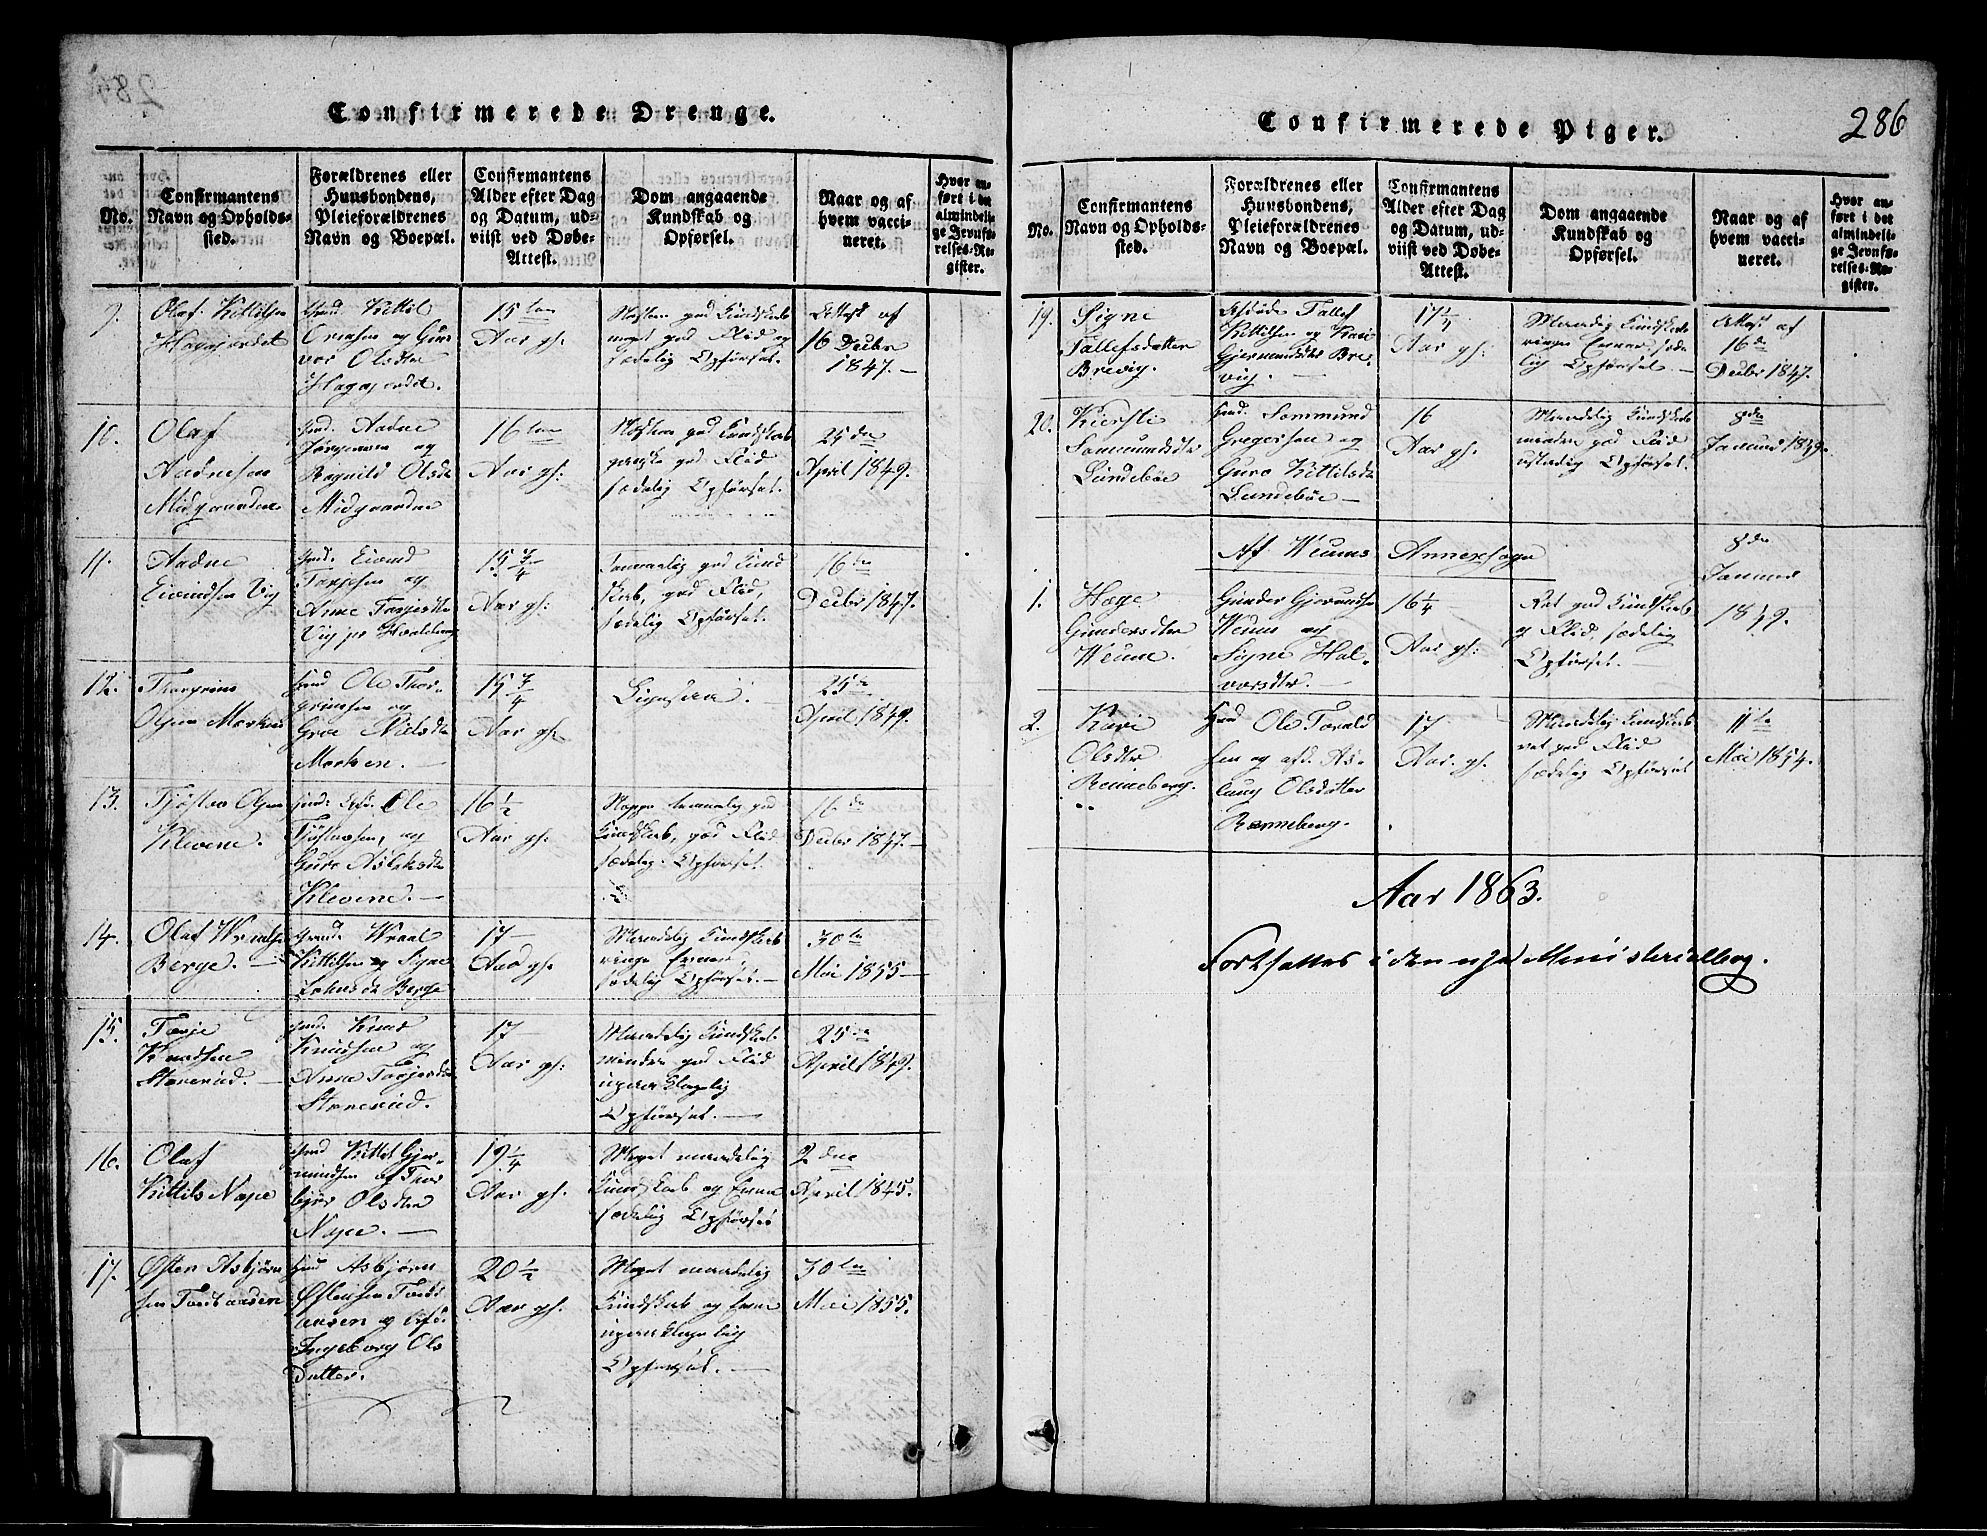 Confirmerede Drenge.
No.
Confirmantens
Navn og Opholds-
sted.
Forældrenes eller
Huusbondens,
Pleieforældrenes
Navn og Boepæl.
Confirmantens
Alder efter Dag
og Datum, ud-
viist ved Døbe-
Attest.
Dom angaaende
Kundskab og
Opførsel.
Naar og af
hvem vacci-
neret.
Hvor an-
ført i det
almindeli-
ge Jevnfø-
relses-Re-
gister.
9.
Olaf Kittilsen
Hagajordet
Kittil
og Gun
vor Olsdtr
15
Aar gl:
god Kundskab
meget god Flid og
sædelig Opførsel.
Attest af
16 Decbr
1847. —
10.
Olaf
Aadnesen
Midgaarden
Gmd. Aadne
Jørgensen og
Ragnild Olsdtr
Midgaarden
16
Aar gl:
god Kundskab
ganske god Flid
sædelig Opførsel.
25 de
April 1849.
11.
Aadne
Eivindsen Vig
Gmd. Eivind
Tarjesen og
Anne Tarjesdtr
Vig
15 3/4
Aar gl:
god Kund
skab, god Flid,
sædelig Opførsel.
16
Decbr 1847.
12.
Olsen Morken
Gmd Ole Thor-
grimsen og
Groe Nielsdtr
Morken. —
15 3/4
Aar gl:
Ligesaa. —
25
April 1849.
13.
Olsen
Klevene.
Ole
og
Guro Aslaksdtr
Klevene. —
16 1/2
Aar gl:
Neppe temmelig god
Kundskab, god Flid
sædelig Opførsel.
16 de
Decbr 1847. —
14.
Olaf Wraalsen
Berge. —
Gmd. Wraal
Kittilsen og Signe
Berge
17
Aar gl.
Maadelig Kundskab
ringe Evner,
sædelig Opførsel. —
30
Mai 1855 —
15.
Tarje
Knudsen
Gmd. Knud
Knudsen og
Anne Tarjesdtr
17
Aar gl:
Maadelig Kundskab
mindre god Flid
upaaklagelig
Opførsel. —
25 de
April 1849.
16.
Olaf
Kittils Nape
Gmd Kittil Gjer-
mundsen
Olsdtr
Nape. —
19 1/4
Aar gl.
Meget maadelig
Kundskab og Evne
sædelig Opførsel
2 den
April 1845.
17.
Østen Asbjørn
sen
Gmd Asbjørn
Østensen
og
Ingeborg Ols
datter.
20 1/2
Aar gl.
Meget maadelig
Kundskab og Evne
upaaklagelig
Opførsel. —
30
Mai 1855.
286
Confirmerede Piger.
No.
Confirmantens
Navn og Opholds-
sted.
Forældrenes eller
Huusbondens,
Pleieforældrenes
Navn og Boepæl.
Confirmantens
Alder efter Dag
og Datum, ud-
viist ved Døbe-
Attest.
Dom angaaende
Kundskab og
Opførsel.
Naar og af
hvem vacci-
neret.
Hvor an-
ført i det
almindeli-
ge Jevnfø-
relses-Re-
gister.
19.
Signe
Tallefsdatter
Brevig.
Afdøde Tallef
Kittilsen og Kari
Gjermundsdtr Bre
vig. —
17 1/4
Aar gl:
Maadelig Kundskab
ringe Evner, sæde
lig Opførsel —
Attest af
16 de
Decbr 1847.
20.
Kiersti
Sommundsdtr
Lundebøe
Gmd. Sommund
Gregersen og
Guro Kittilsdtr
Lundebøe —
16
Aar gl.
Maadelig Kundskab
mindre god Flid
ustadig Opførsel.
8de
Januar 1849.
Af Weums Annexsogn
1.
Hæge
Gundersdtr
Weum.
Gunder Gjermundsen
Weum og
Signe Hal-
vorsdtr. —
16 1/4
Aar gl:
Ret god Kundskab
og Flid, sædelig
Opførsel. —
8de
Januar
1849.
2.
Kari
Olsdtr
Renneberg.
Gmd Ole Torald
sen og afd. As-
laug Olsdatter
Renneberg.
17
Aar. gl.
Maadelig Kundskab
ret god Flid
sædelig Opførsel
11te
Mai 1854.
Aar 1863.
Fortsættes i den nye Ministerialbog.